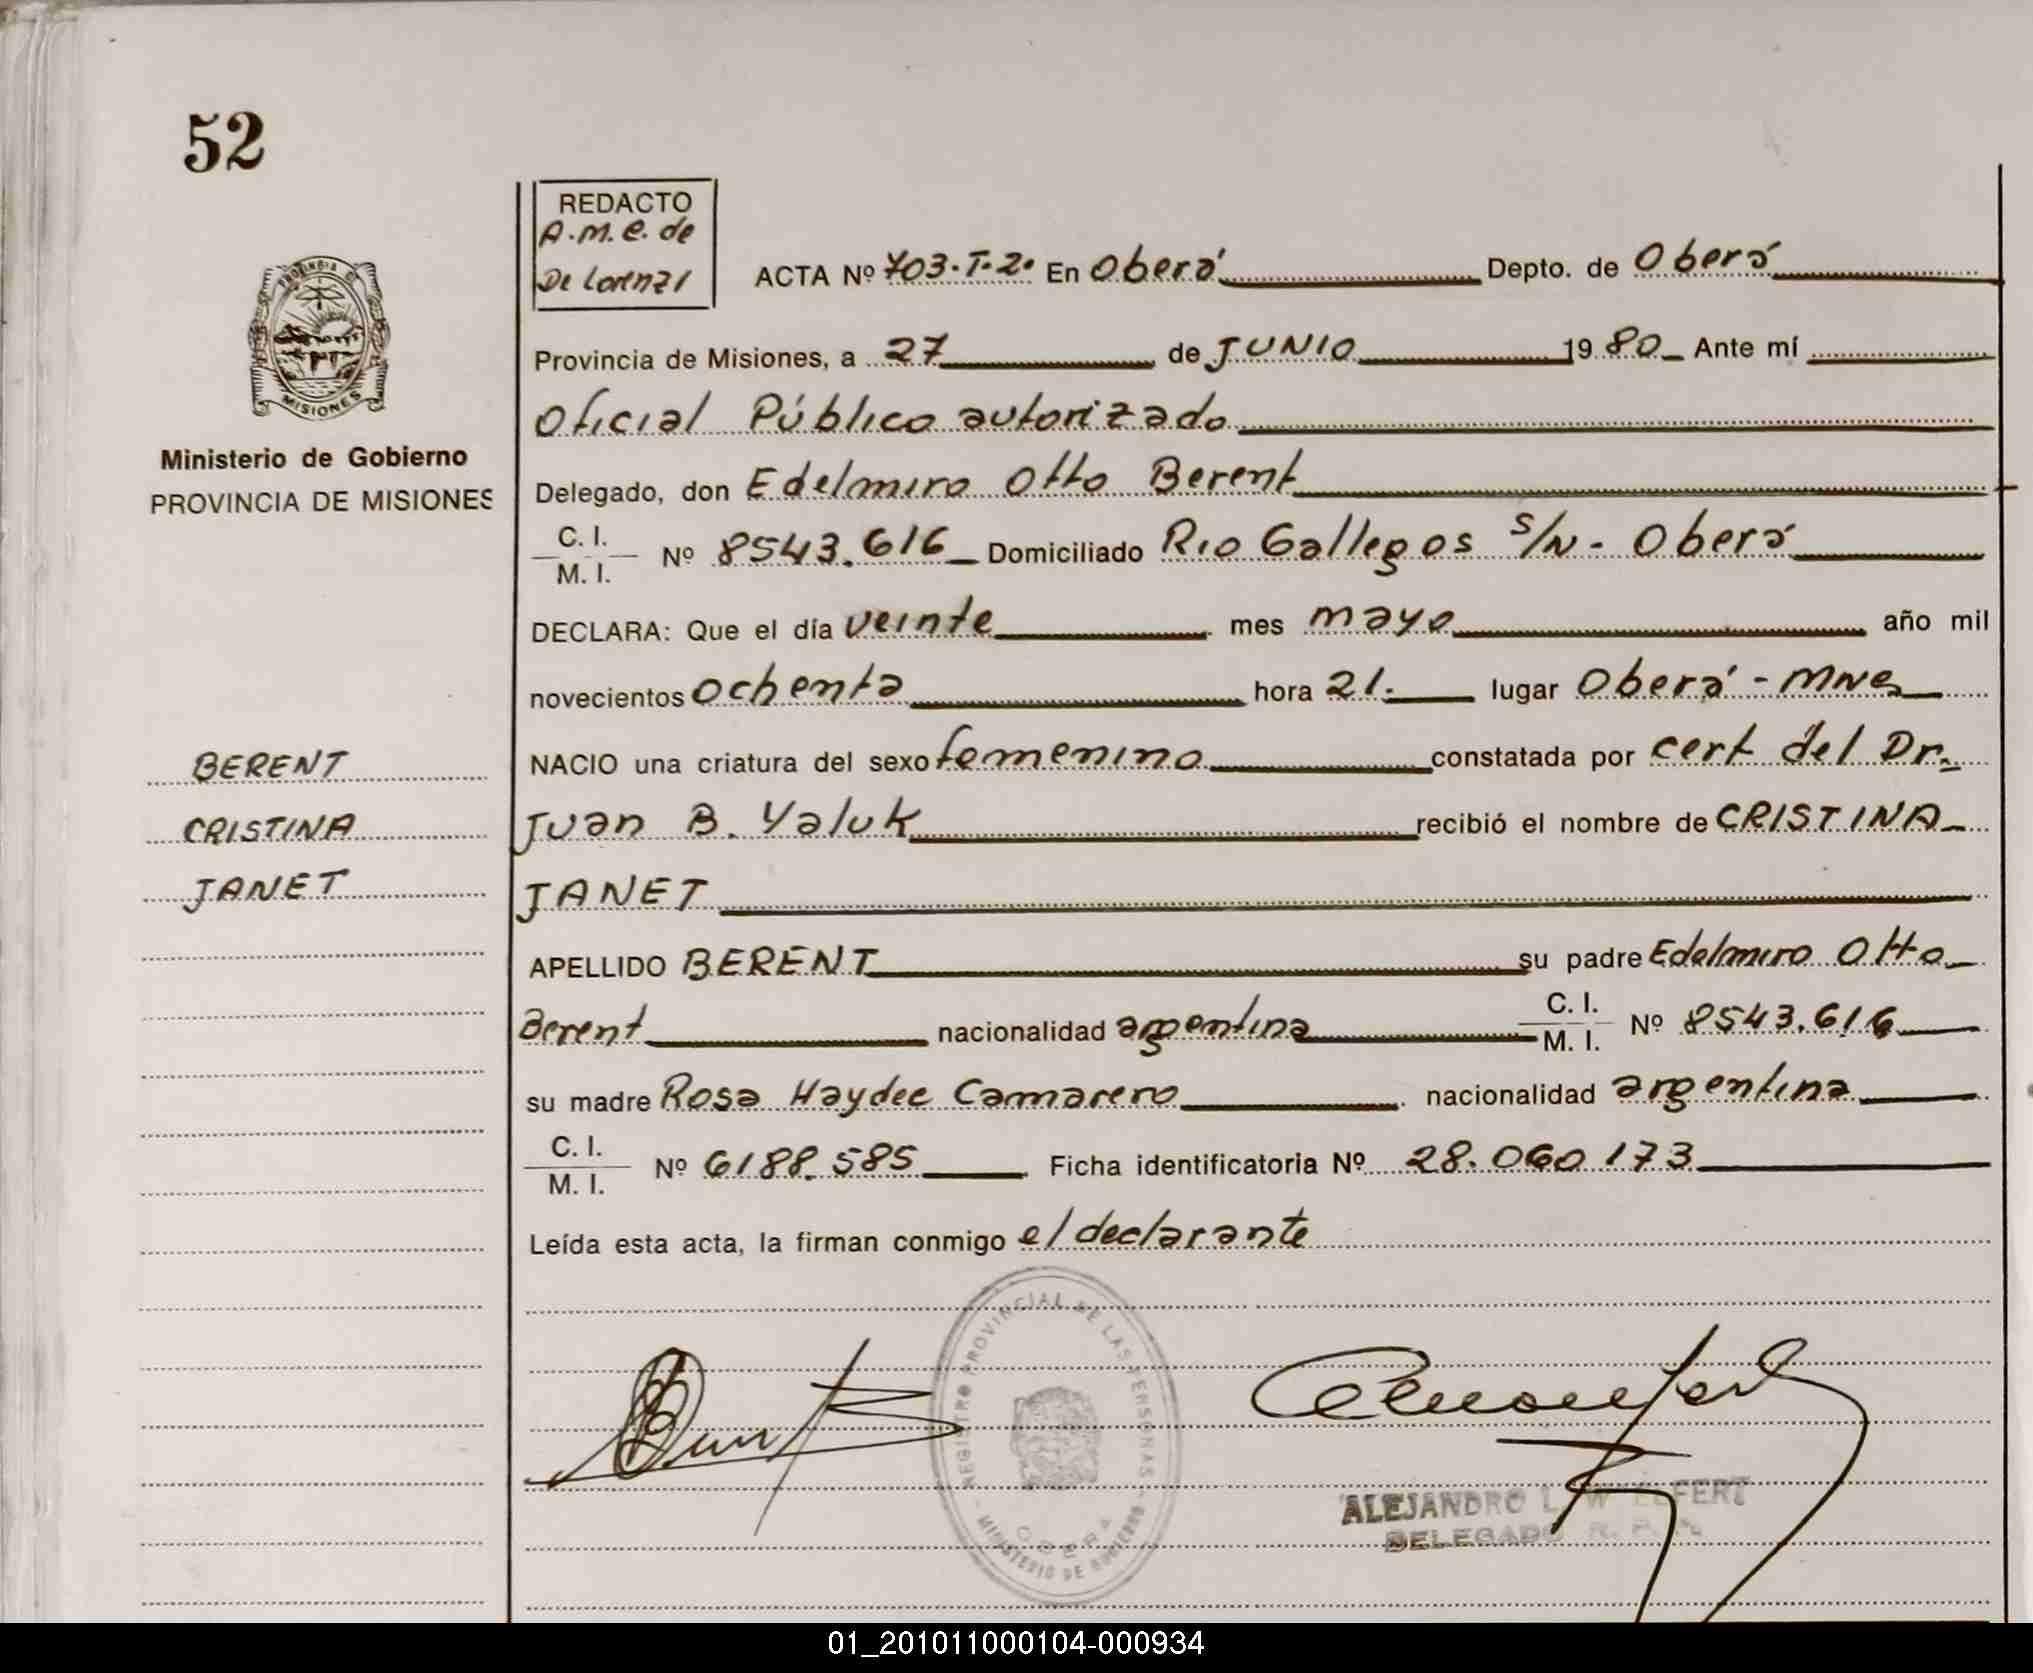 52
REDACTO
A.M.C. de
De Lorenzi
ACTA Nº 703-T-2. En Oberá Depto. de Oberá
PROVINCIA DE MISIONES
Provincia de Misiones, a 27 de JUNIO 1980 Ante mí
Oficial Público autorizado
Ministerio de Gobierno
PROVINCIA DE MISIONES
Delegado, don Edelmiro Otto Berent
C. I.
M. I. Nº 8543.616 Domiciliado Rio Gallegos s/N - Oberá
DECLARA: Que el día veinte mes mayo año mil
novecientos ochenta hora 21. lugar Oberá - Mnes
BERENT
CRISTINA
JANET
NACIO una criatura del sexo femenino constatada por cert del Dr.
Juan B. Yaluk recibió el nombre de CRISTINA
JANET
APELLIDO BERENT su padre Edelmiro Otto
Berent nacionalidad argentina C. I. M. I. Nº 8543.616
su madre Rosa Haydee Camarero nacionalidad argentina
C. I.
M. I. Nº 6188.585 Ficha identificatoria Nº 28.060.173
Leída esta acta, la firman conmigo el declarante
REGISTRO PROVINCIAL DE LAS PERSONAS
OBERA
MINISTERIO DE GOBIERNO
ALEJANDRO L. W. ELFERT
DELEGADO R. P.
01_201011000104-000934